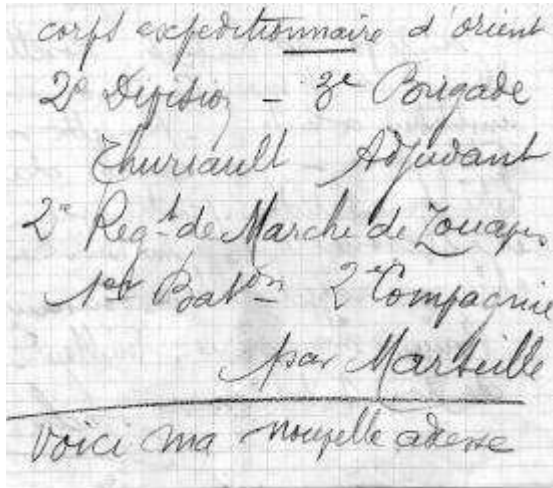 corps expeditionnaire d'orient
2e Division - 3e Brigade
Thuriault Adjudant
2e Regt de Marche de Zouaves
1er Baton 2e Compagnie
par Marseille
Voici ma nouvelle adresse